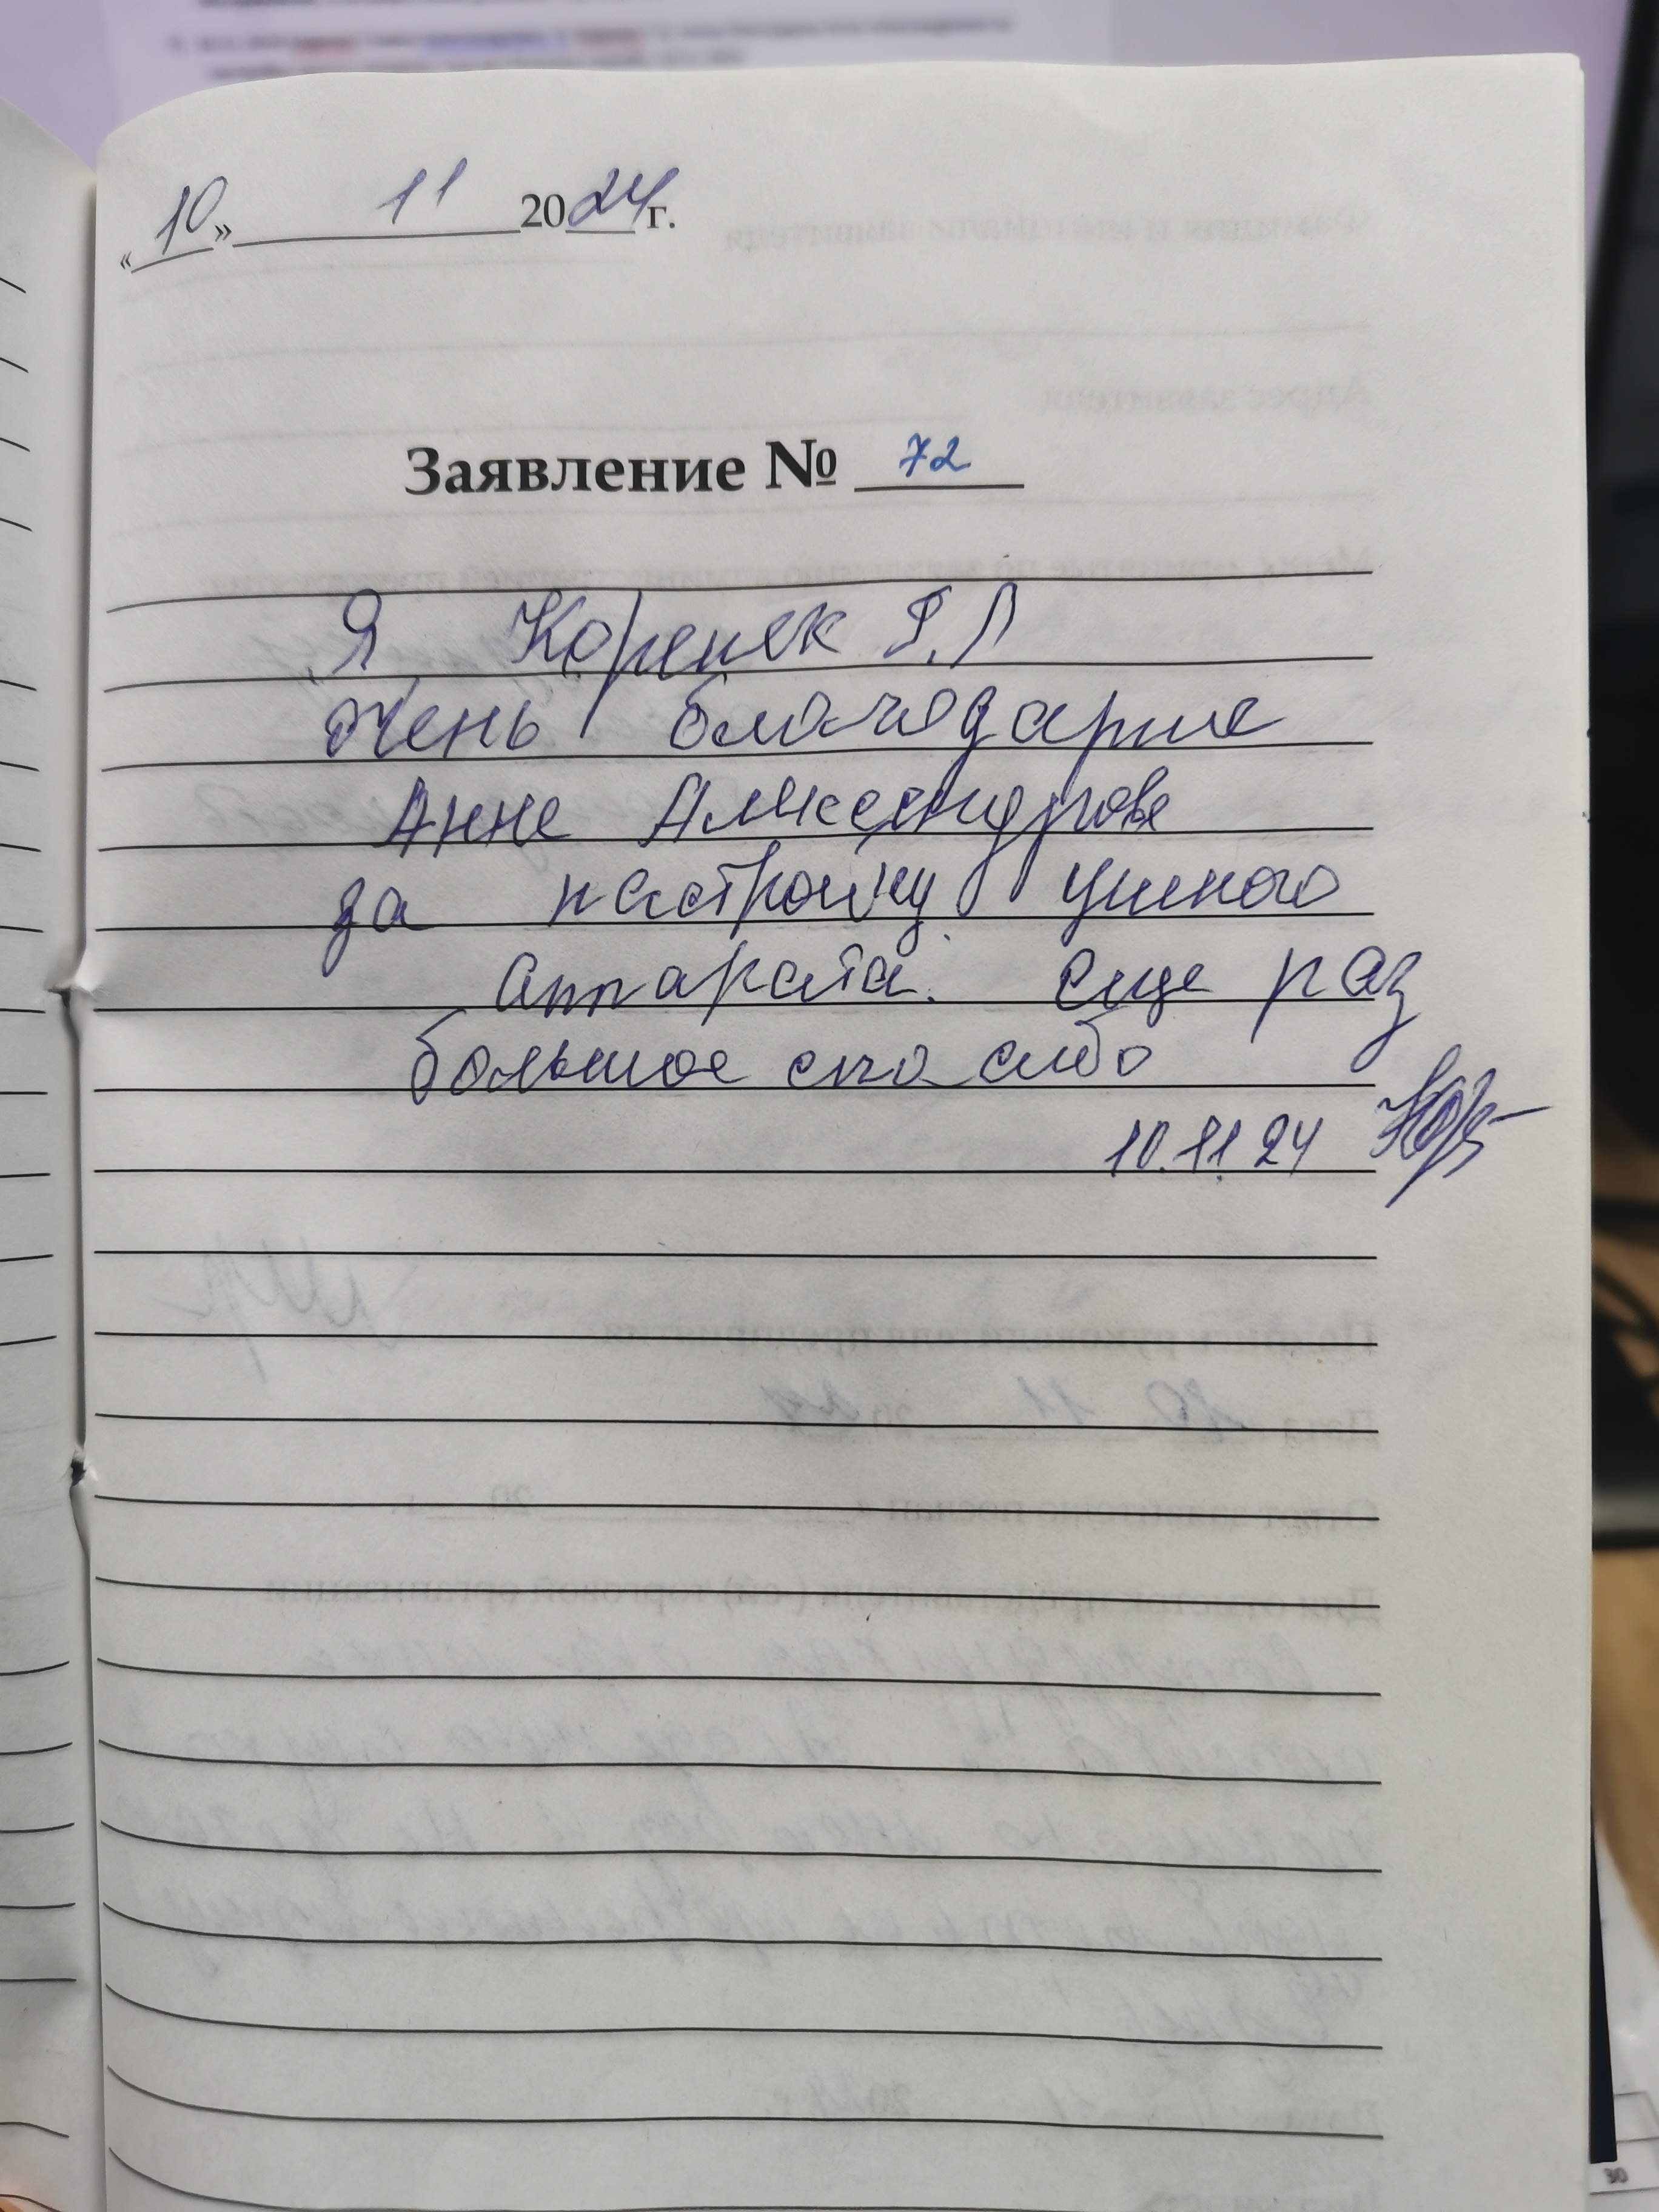 «10» 11 2024 г.
Заявление № 72
Я Коренек Г.Л
Очень благодарне
Анне Александровне
за настройку ушного
аппарата. Еще раз
большое спасибо
10.11.24